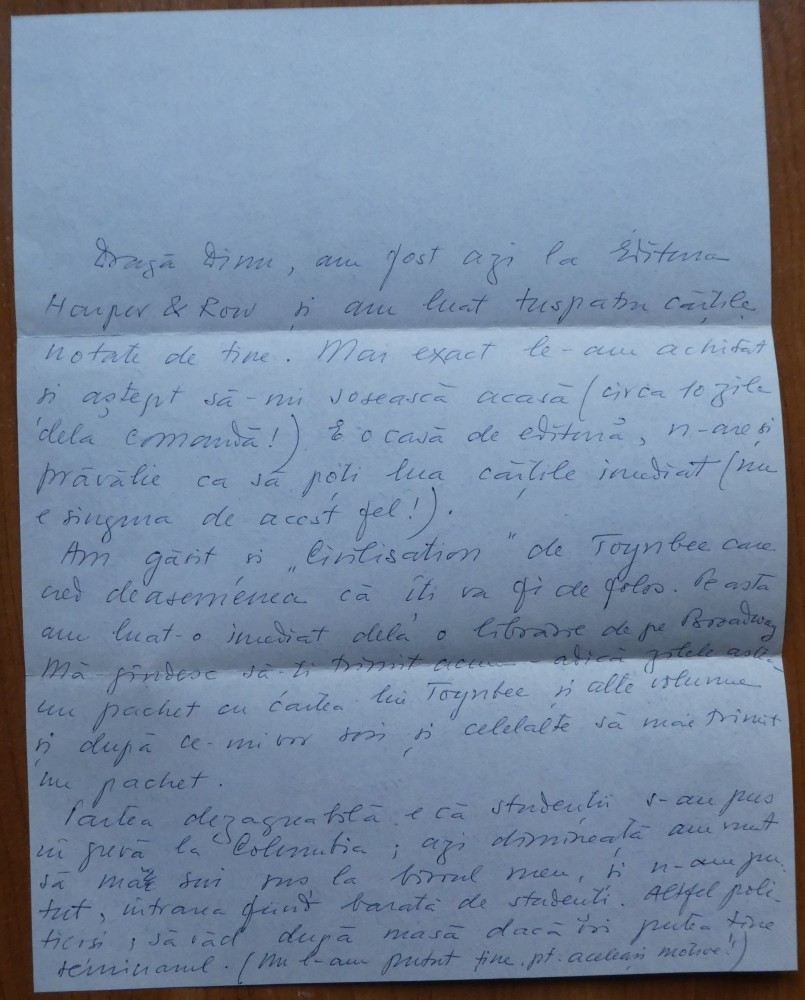 Dragă Dinu, am fost azi la Editura
Harper & Row și am luat tuspatru cărțile
notate de tine. Mai exact le-am achitat
și aștept să-mi sosească acasă (circa 10 zile
dela comandă!) E o casă de editură, n-are și
prăvălie ca să poți lua cărțile imediat (nu
e singura de acest fel!).
Am găsit și „Civilisation" de Toynbee care
cred deasemenea că îți va fi de folos. Pe asta
am luat-o imediat dela o librărie de pe Broadway
Mă gîndesc să-ți trimit acum - adică zilele astea
un pachet cu cartea lui Toynbee și alte volume
și după ce-mi vor sosi și celelalte să mai trimit
un pachet.
Partea dezagreabilă e că studenții s-au pus
în grevă la Columbia; azi dimineață am vrut
să mă sui sus la biroul meu, și n-am pu-
tut, intrarea fiind barată de studenți. Astfel
să văd după masă dacă îmi putea ține
seminarul. (Nu l-am putut ține, pt. aceleași motive!)